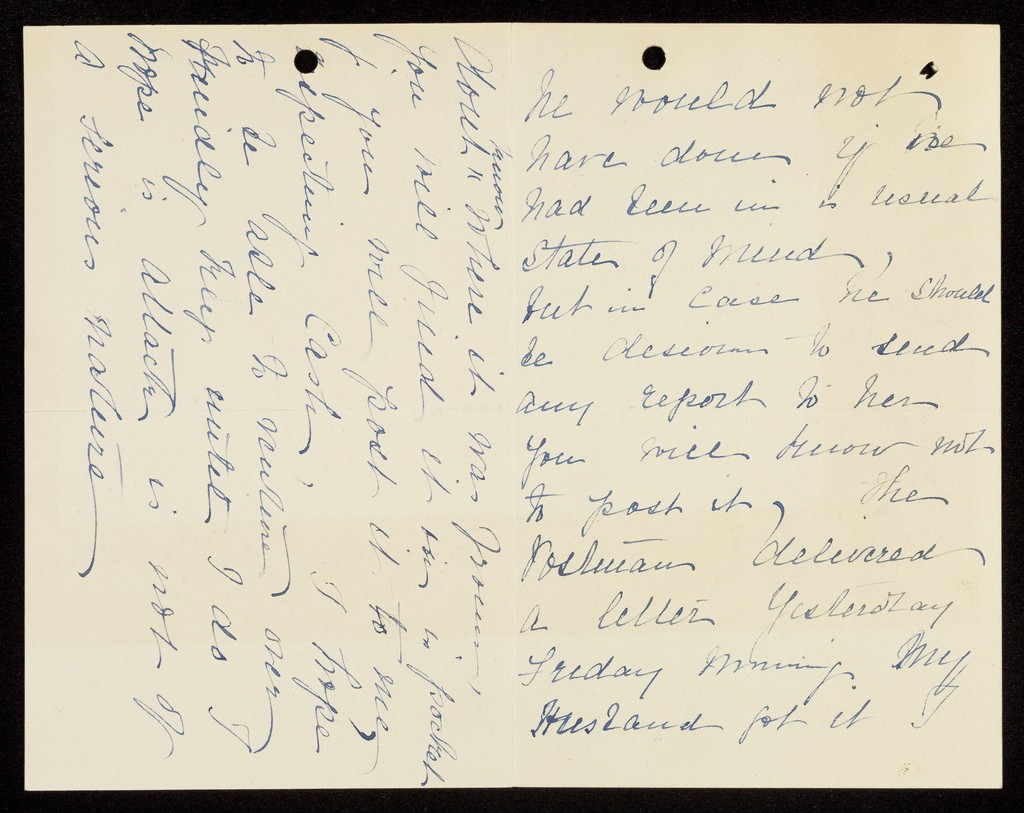 he would not
have done if he
had been in is usual
State of Mind,
but in Case he should
be desirous to send
any report to her
you will know not
to post it, The
Postman delivered
a letter Yesterday
Friday Morning. My
Husband got it I
know
Dont " Where it was from,
You will find it in is pocket
if you will post it to me,
respecting Cash, I hope
to be able to venture over
Kindly keep until I do I
hope is attack is not of
a serious nature